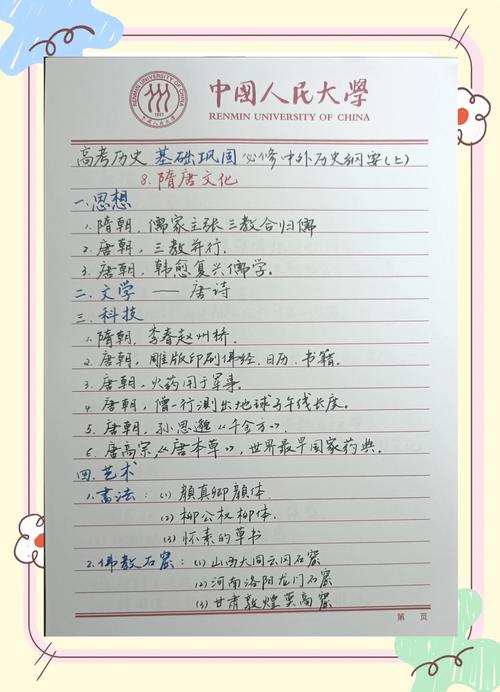 RENMIN UNIVERSITY OF CHINA
1937
中國人民大學
RENMIN UNIVERSITY OF CHINA
高考历史 基础巩固 必修中外历史纲要(上)
8.隋唐文化
一.思想
1.隋朝,儒家主张三教合归儒
2.唐朝,三教并行.
3.唐朝,韩愈复兴儒学。
二.文学 —— 唐诗
三.科技
1.隋朝,李春赵州桥.
2.唐朝,雕版印刷佛经.日历.书籍。
3.唐朝,火药用于军事。
4.唐朝,僧一行测出地球子午线长度。
5.唐朝,孙思邈《千金方》.
6.唐高宗,《唐本草》,世界最早国家药典。
四.艺术
1.書法:(1)顔真卿顔体.
(2)柳公权柳体.
(3)怀素的草书
2.佛教石窟:(1)山西大同云冈石窟
(2)河南洛阳龙门石窟
(3)甘肃敦煌莫高窟
第 页